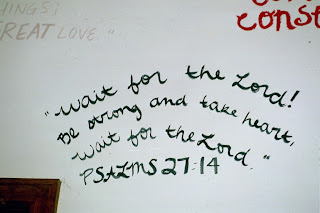 THINGS?
GREAT LOVE."
CONST
"wait for the Lord!
Be strong and take heart,
wait for the Lord."
PSALMS 27:14